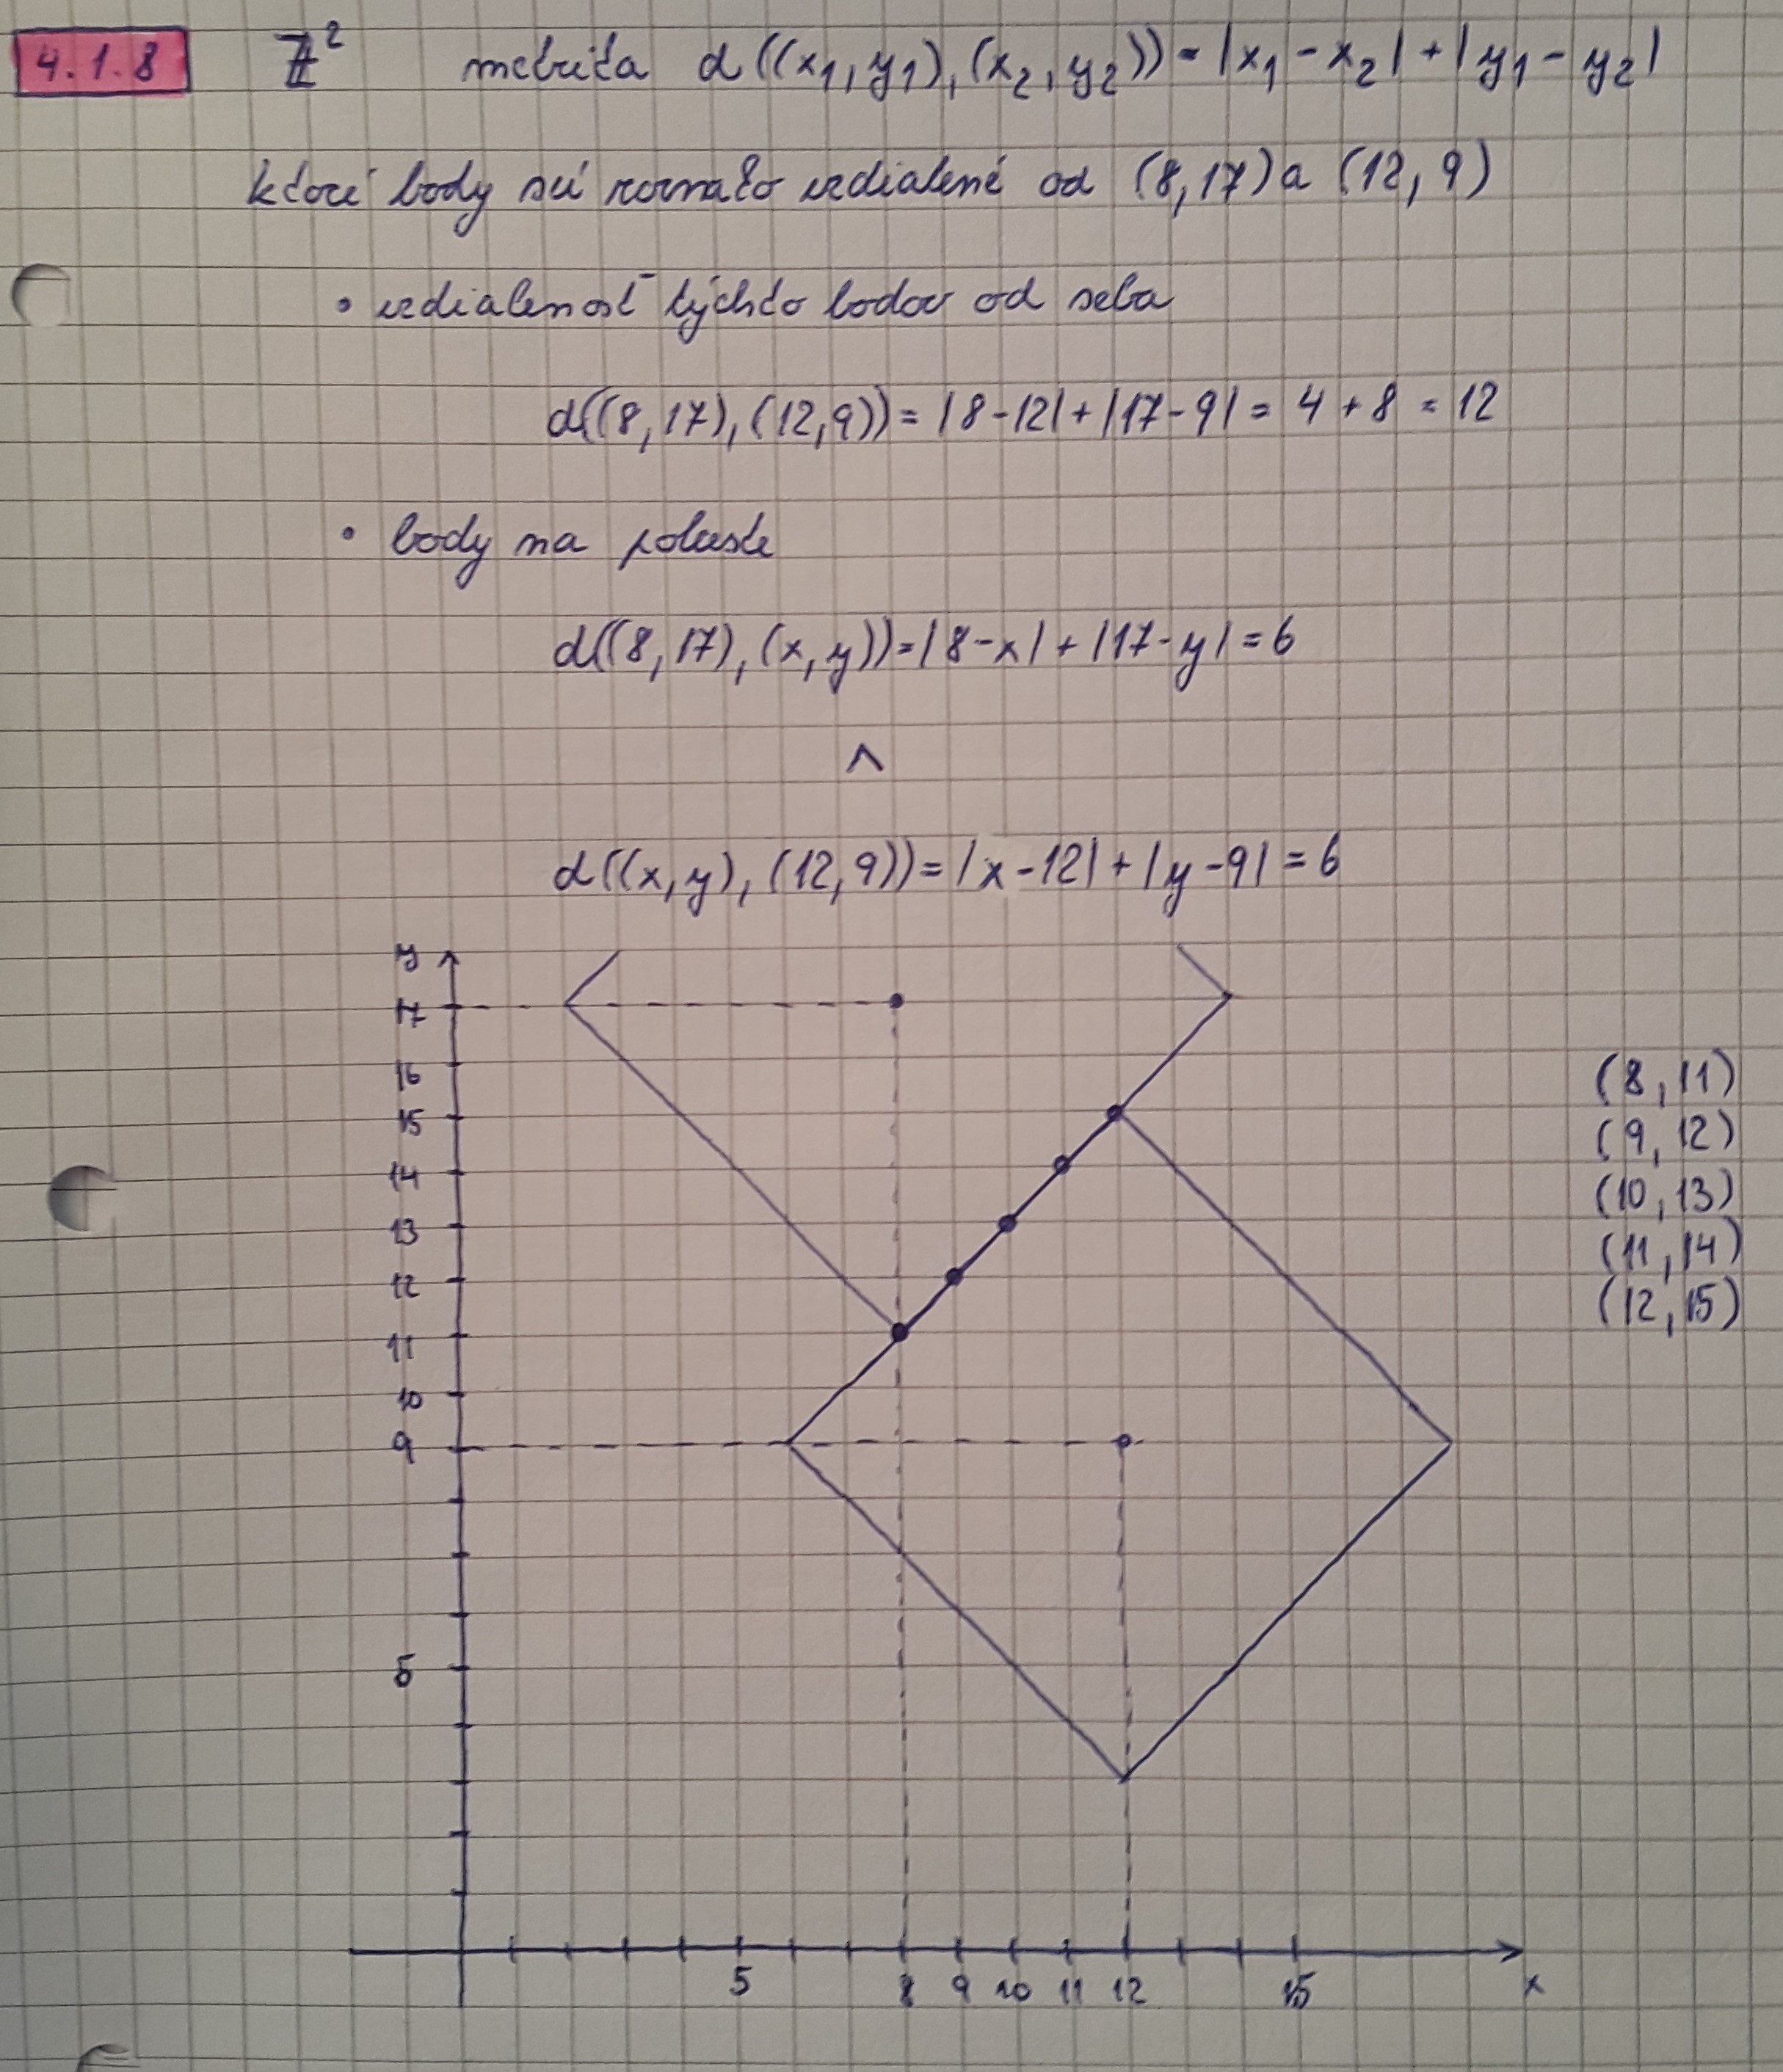 4.1.8 ℤ² metrika d((x₁,y₁),(x₂,y₂)) = |x₁-x₂|+|y₁-y₂|
ktoré body sú rovnako vzdialené od (8,17) a (12,9)
• vzdialenosť týchto bodov od seba
d((8,17),(12,9)) = |8-12|+|17-9| = 4+8 = 12
• body na polceste
d((8,17),(x,y)) = |8-x|+|17-y| = 6
∧
d((x,y),(12,9)) = |x-12|+|y-9| = 6
y
17
16
15
14
13
12
11
10
9
5
(8,11)
(9,12)
(10,13)
(11,14)
(12,15)
5 8 9 10 11 12 15 x